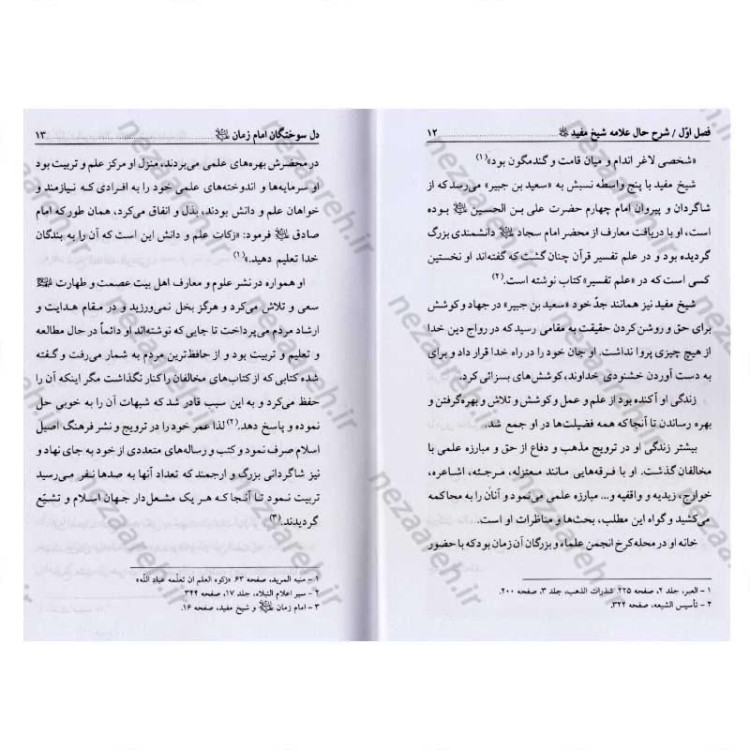 فصل اوّل / شرح حال علامه شیخ مفید ۱۲
«شخصی لاغر اندام و میان قامت و گندمگون بود»(۱)
شیخ مفید با پنج واسطه نسبش به «سعید بن جبیر» می‌رسد که از
شاگردان و پیروان امام چهارم حضرت علی بن الحسین بوده
است، او با دریافت معارف از محضر امام سجاد دانشمندی بزرگ
گردیده بود و در علم تفسیر قرآن چنان گشت که گفته‌اند او نخستین
کسی است که در «علم تفسیر» کتاب نوشته است.(۲)
شیخ مفید نیز همانند جدّ خود «سعید بن جبیر» در جهاد و کوشش
برای حق و روشن کردن حقیقت به مقامی رسید که در رواج دین خدا
از هیچ چیزی پروا نداشت. او جان خود را در راه خدا قرار داد و برای
به دست آوردن خشنودی خداوند، کوشش‌های بسزائی کرد.
زندگی او آکنده بود از علم و عمل و کوشش و تلاش و بهره گرفتن و
بهره رساندن تا آنجا که همه فضیلت‌ها در او جمع شد.
بیشتر زندگی او در ترویج مذهب و دفاع از حق و مبارزه علمی با
مخالفان گذشت. او با فرقه‌هایی مانند معتزله، مرجئه، اشاعره،
خوارج، زیدیه و واقفیه و... مبارزه علمی می‌نمود و آنان را به محاکمه
می‌کشید و گواه این مطلب، بحث‌ها و مناظرات او است.
خانه او در محله کرخ انجمن علماء و بزرگان آن زمان بود که با حضور
۱ - العبر، جلد ۲، صفحه ۲۲۵. شذرات الذهب، جلد ۳، صفحه ۲۰۰.
۲ - تأسیس الشیعه، صفحه ۳۲۴.
دل سوختگان امام زمان ۱۳
در محضرش بهره‌های علمی می‌بردند، منزل او مرکز علم و تربیت بود
او سرمایه‌ها و اندوخته‌های علمی خود را به افرادی که نیازمند و
خواهان علم و دانش بودند، بذل و انفاق می‌کرد، همان طور که امام
صادق فرمود: «زکات علم و دانش این است که آن را به بندگان
خدا تعلیم دهید.»(۱)
او همواره در نشر علوم و معارف اهل بیت عصمت و طهارت
سعی و تلاش می‌کرد و هرگز بخل نمی‌ورزید و در مقام هدایت و
ارشاد مردم می‌پرداخت تا جایی که نوشته‌اند او دائماً در حال مطالعه
و تعلیم و تربیت بود و از حافظ‌ترین مردم به شمار می‌رفت و گفته
شده کتابی که از کتاب‌های مخالفان را کنار نگذاشت مگر اینکه آن را
حفظ می‌کرد و به این سبب قادر شد که شبهات آن را به خوبی حل
نموده و پاسخ دهد.(۲) لذا عمر خود را در ترویج و نشر فرهنگ اصیل
اسلام صرف نمود و کتب و رساله‌های متعددی از خود به جای نهاد و
نیز شاگردانی بزرگ و ارجمند که تعداد آنها به صدها نفر می‌رسید
تربیت نمود تا آنجا که هر یک مشعل‌دار جهان اسلام و تشیّع
گردیدند.(۳)
۱ - منیه المرید، صفحه ۶۳. «زکوه العلم ان تعلمه عباد الله»
۲ - سیر اعلام النبلاء، جلد ۱۷، صفحه ۳۴۴
۳ - امام زمان و شیخ مفید، صفحه ۱۶.
nezaareh.ir